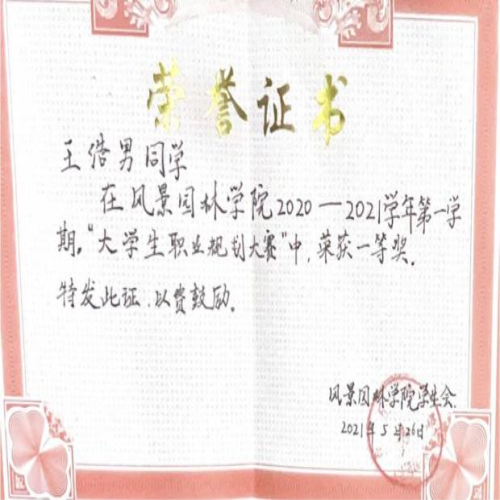 荣誉证书
王浩男同学
在风景园林学院2020—2021学年第一学
期，“大学生职业规划大赛”中，荣获一等奖。
特发此证，以资鼓励。
风景园林学院学生会
2021年5月26日